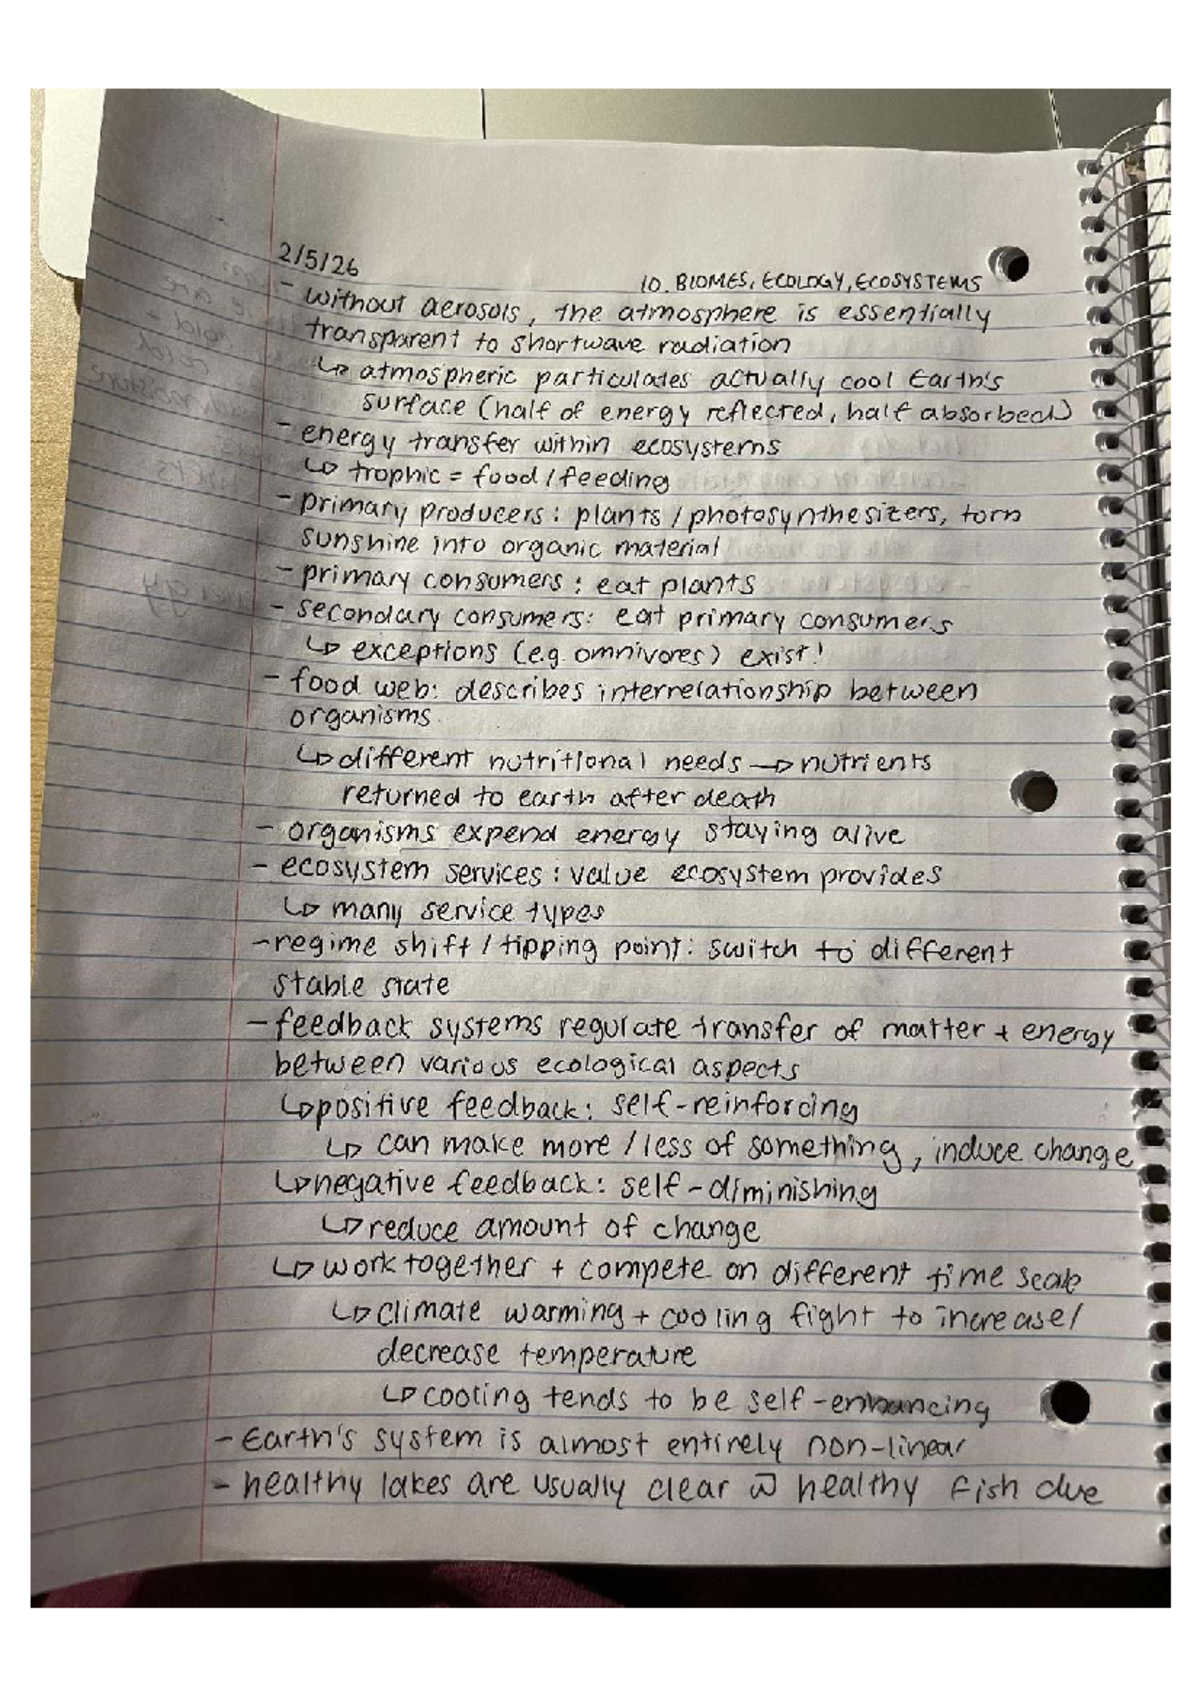 2/5/26
10. BIOMES, ECOLOGY, ECOSYSTEMS
- without aerosols, the atmosphere is essentially
transparent to shortwave radiation
↳ atmospheric particulates actually cool Earth's
surface (half of energy reflected, half absorbed)
- energy transfer within ecosystems
↳ trophic = food / feeding
- primary producers: plants / photosynthesizers, torn
sunshine into organic material
- primary consumers: eat plants
- secondary consumers: eat primary consumers
↳ exceptions (e.g. omnivores) exist!
- food web: describes interrelationship between
organisms
↳ different nutritional needs → nutrients
returned to earth after death
- organisms expend energy staying alive
- ecosystem services: value ecosystem provides
↳ many service types
- regime shift / tipping point: switch to different
stable state
- feedback systems regulate transfer of matter + energy
between various ecological aspects
↳ positive feedback: self-reinforcing
↳ can make more / less of something, induce change
↳ negative feedback: self-diminishing
↳ reduce amount of change
↳ work together + compete on different time scale
↳ climate warming + cooling fight to increase/
decrease temperature
↳ cooling tends to be self-enhancing
- Earth's system is almost entirely non-linear
- healthy lakes are usually clear w healthy fish due